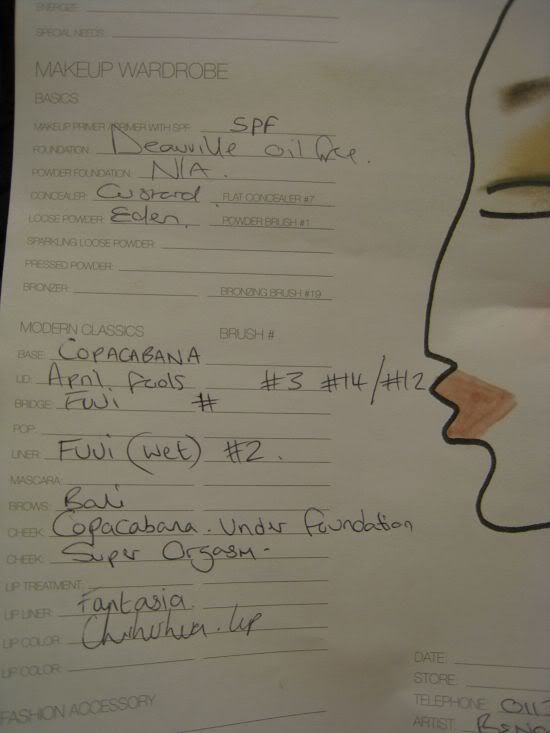 ENERGIZE:
SPECIAL NEEDS:
MAKEUP WARDROBE
BASICS
MAKEUP PRIMER / PRIMER WITH SPF: SPF
FOUNDATION: Deauville oil free.
POWDER FOUNDATION: N/A.
CONCEALER: Custard. FLAT CONCEALER #7
LOOSE POWDER: Eden. POWDER BRUSH #1
SPARKLING LOOSE POWDER:
PRESSED POWDER:
BRONZER: BRONZING BRUSH #19
MODERN CLASSICS BRUSH #
BASE: COPACABANA
LID: April fools #3 #14/#12
BRIDGE: FUJI #
POP:
LINER: FUJI (wet) #2.
MASCARA:
BROWS: Bali
CHEEK: Copacabana. Under foundation
CHEEK: Super Orgasm-
LIP TREATMENT:
LIP LINER: Fantasia.
LIP COLOR: Chihuhua. Lip
LIP COLOR:
FASHION ACCESSORY
DATE:
STORE:
TELEPHONE: 011
ARTIST: